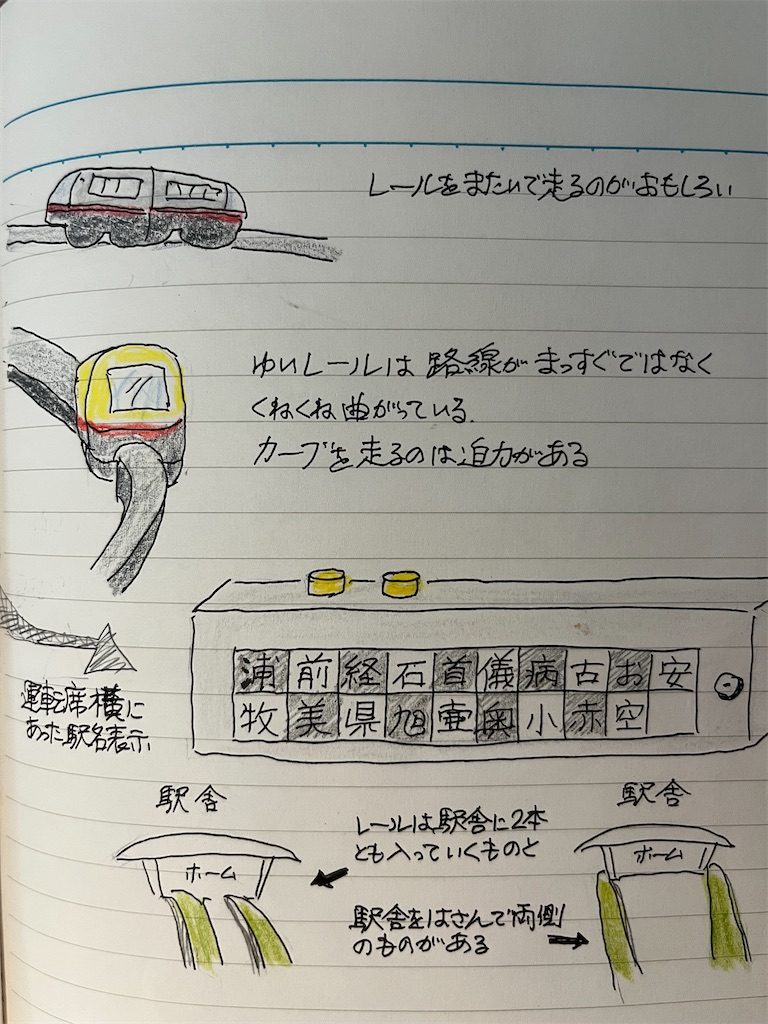 レールをまたいで走るのがおもしろい
ゆいレールは路線がまっすぐではなく
くねくね曲がっている.
カーブを走るのは迫力がある
運転席横に
あった駅名表示.
浦前経石首儀病古お安
牧美県旭壷奥小赤空
駅舎
ホーム
レールは駅舎に2本
とも入っていくものと
駅舎をはさんで両側
のものがある
駅舎
ホーム